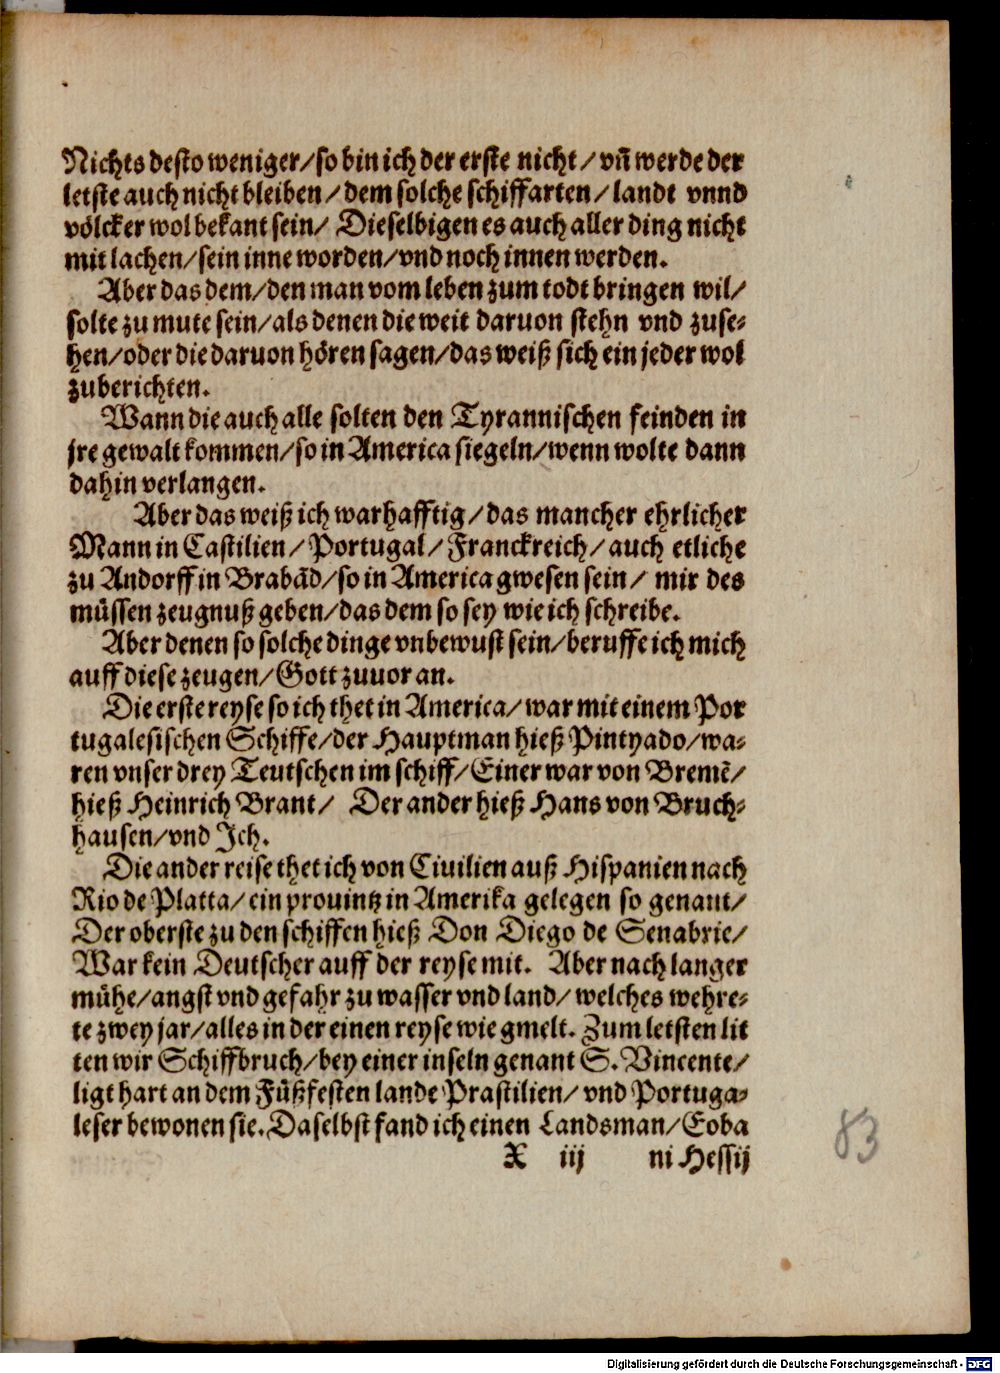 Nichts desto weniger/so bin ich der erste nicht/vñ werde der
letste auch nicht bleiben/dem solche schiffarten/landt vnnd
völcker wol bekant sein/ Dieselbigen es auch aller ding nicht
mit lachen/sein inne worden/vnd noch innen werden.
Aber das dem/den man vom leben zum todt bringen wil/
solte zu mute sein/als denen die weit daruon stehn vnd zuse-
hen/oder die daruon hören sagen/das weiß sich ein jeder wol
zuberichten.
Wann die auch alle solten den Tyrannischen feinden in
jre gewalt kommen/so in America siegeln/wenn wolte dann
dahin verlangen.
Aber das weiß ich warhafftig/das mancher ehrlicher
Mann in Castilien/Portugal/Franckreich/auch etliche
zu Andorff in Brabãd/so in America gwesen sein/ mir des
müssen zeugnuß geben/das dem so sey wie ich schreibe.
Aber denen so solche dinge vnbewust sein/beruffe ich mich
auff diese zeugen/Gott zuuor an.
Die erste reyse so ich thet in America/war mit einem Por
tugalesischen Schiffe/der Hauptman hieß Pintyado/wa-
ren vnser drey Teutschen im schiff/Einer war von Bremẽ/
hieß Heinrich Brant/ Der ander hieß Hans von Bruch-
hausen/vnd Ich.
Die ander reise thet ich von Ciuilien auß Hispanien nach
Rio de Platta/ein prouintz in Amerika gelegen so genant/
Der oberste zu den schiffen hieß Don Diego de Senabrie/
War kein Deutscher auff der reyse mit. Aber nach langer
mühe/angst vnd gefahr zu wasser vnd land/welches wehre-
te zwey jar/alles in der einen reyse wie gmelt. Zum letsten lit
ten wir Schiffbruch/bey einer inseln genant S. Vincente/
ligt hart an dem Füßfesten lande Prastilien/vnd Portuga-
leser bewonen sie. Daselbst fand ich einen Landsman/Eoba
X iij ni Hessij
83
Digitalisierung gefördert durch die Deutsche Forschungsgemeinschaft - DFG